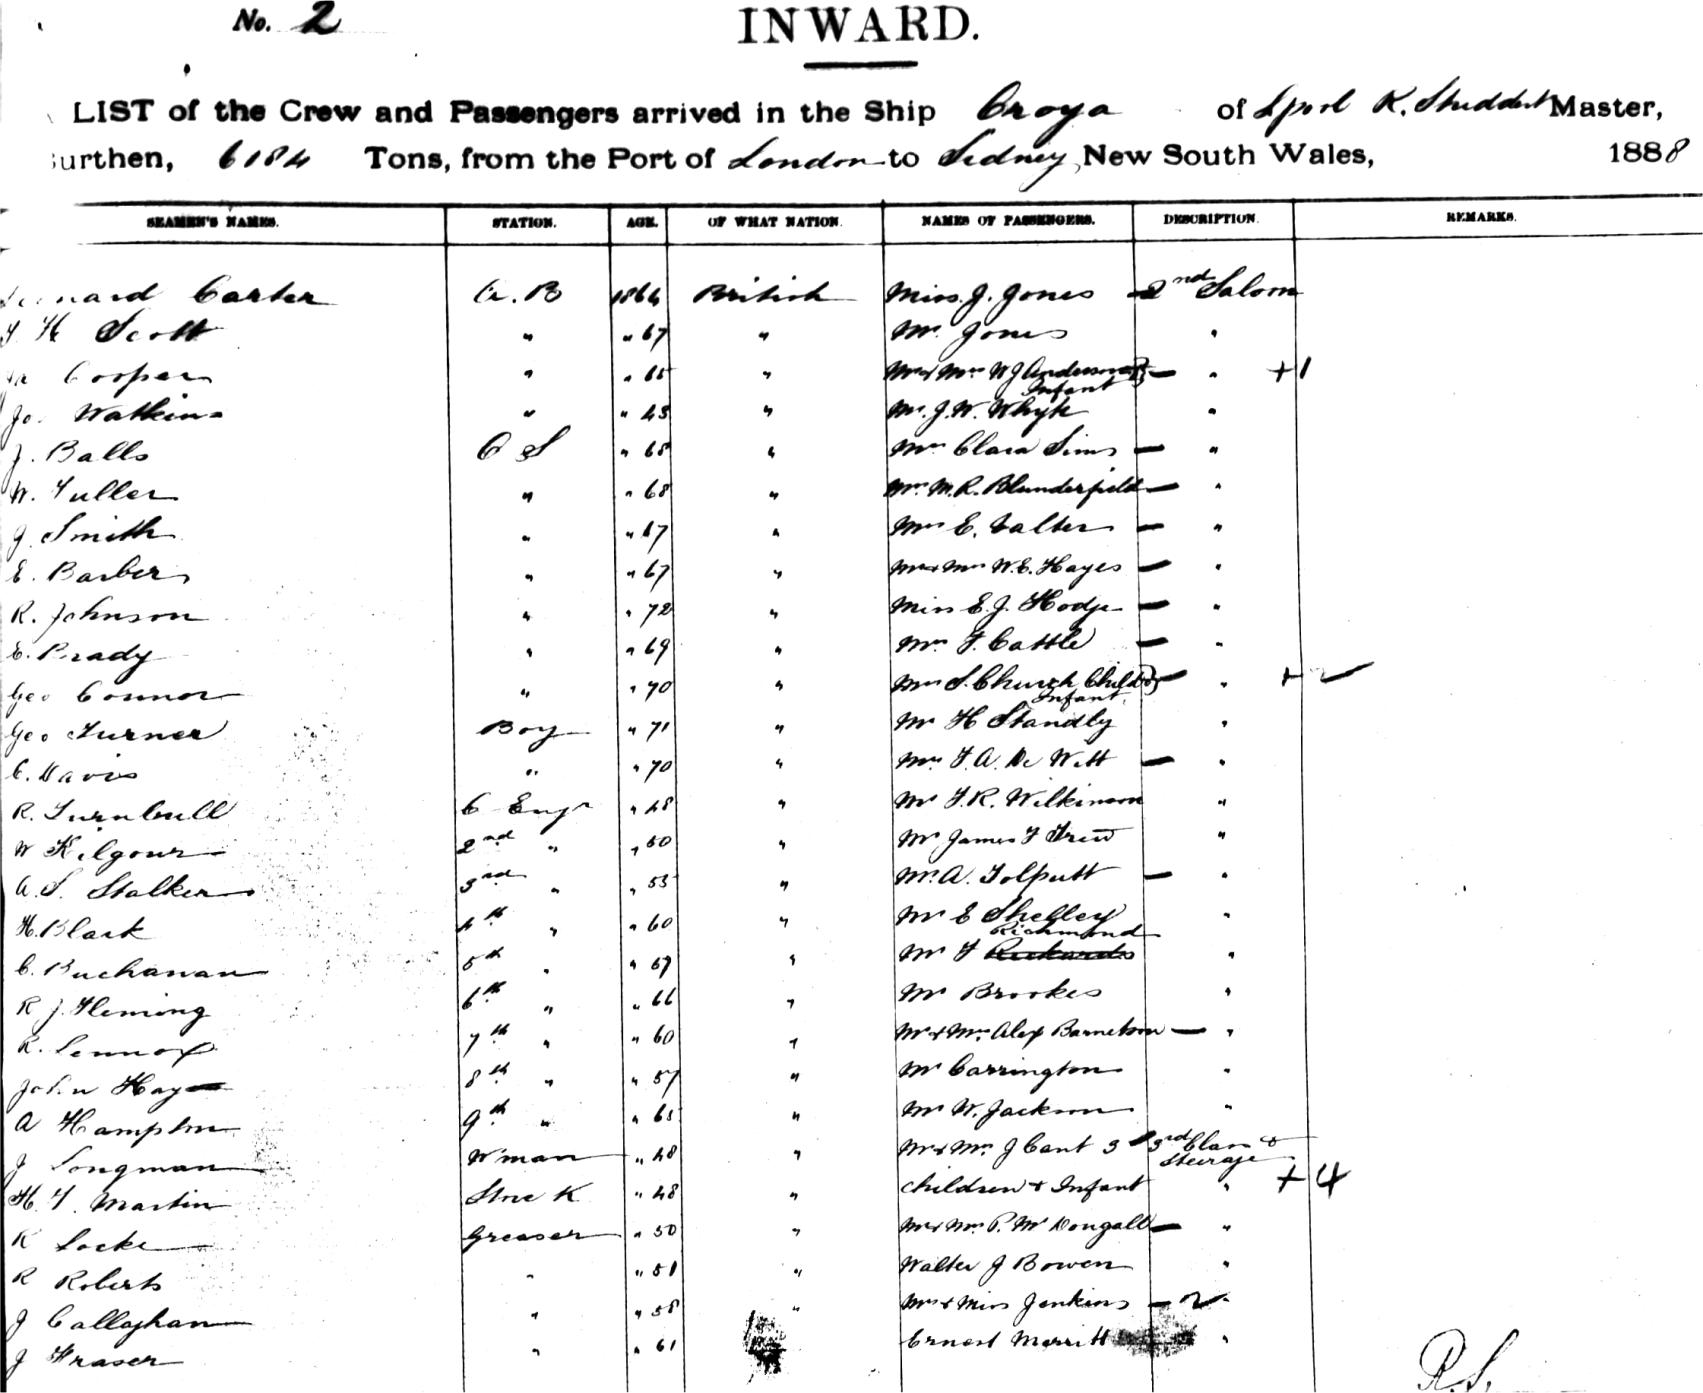 No. 2
INWARD.
LIST of the Crew and Passengers arrived in the Ship Oroya of Lpool R. Studdert Master,
urthen, 6184 Tons, from the Port of London to Sidney, New South Wales, 1888
SEAMEN'S NAMES. STATION. AGE. OF WHAT NATION. NAMES OF PASSENGERS. DESCRIPTION. REMARKS.
nard Carter A.B 1864 British Miss J. Jones 2nd Saloon
H Scott " " 67 " Mr Jones "
Cooper " " " Mr & Mrs W J Anderson & Infant — " +1
Jo. Watkins " " 43 " Mr J. W. Whyte "
J. Balls O S " 68 " Mrs Clara Sims — "
W. Fuller " " 68 " Mrs M. R. Blunderfield — "
J. Smith " " 67 " Mrs E. Valter — "
E. Barber " " 67 " Mr & Mrs W. E. Hayes — "
R. Johnson " " 72 " Miss E. J. Hodge — "
E. Brady " " 69 " Mrs F. Cattle — "
Geo Connor " " 70 " Mrs S. Church Child & Infant — " + 2
Geo Turner Boy " 71 " Mr H Standly "
C. Davis " " 70 " Mrs F. A. De Witt — "
R. Turnbull C Engr " 48 " Mr F. R. Wilkinson "
W Kilgour 2nd " " 50 " Mr James F Trew "
A. S. Stalker 3rd " " 53 " A. Tolputt — "
H. Black 4th " " 60 " Mr E Shelley "
C. Buchanan 5th " " 57 " Mr F Richmond Rickards "
R J Fleming 6th " " 66 " Mr Brookes "
R. Lennox 7th " " 60 " Mr & Mrs Alex Barnetson — "
John Hay 8th " " 57 " Mr Carrington "
A Hampton 9th " " 65 " Mr W. Jackson "
J Longman W'man " 48 " Mr & Mrs J Cant 3 3rd Class & Steerage
H. T. Martin Store K " 48 " children & Infant " + 4
R Locke Greaser " 50 " Mr & Mrs P. McDougall — "
R Roberts " " 51 " Walter J Bowen "
J Callaghan " " 58 " Mrs & Miss Jenkins — 2 "
J Fraser " " 61 Ernest Merritt "
R.S.